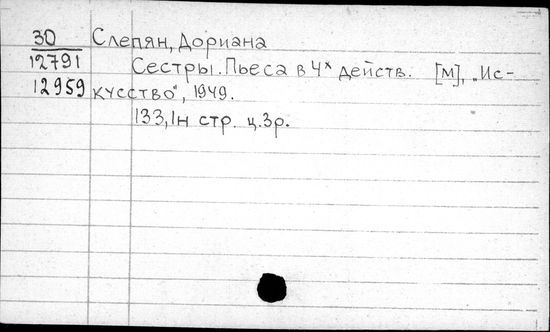 30 Слепян, Дориана
12791 Сестры. Пьеса в 4х действ. [М], „Ис-
12959 кусство", 1949.
133, 1н стр. ц. 3р.